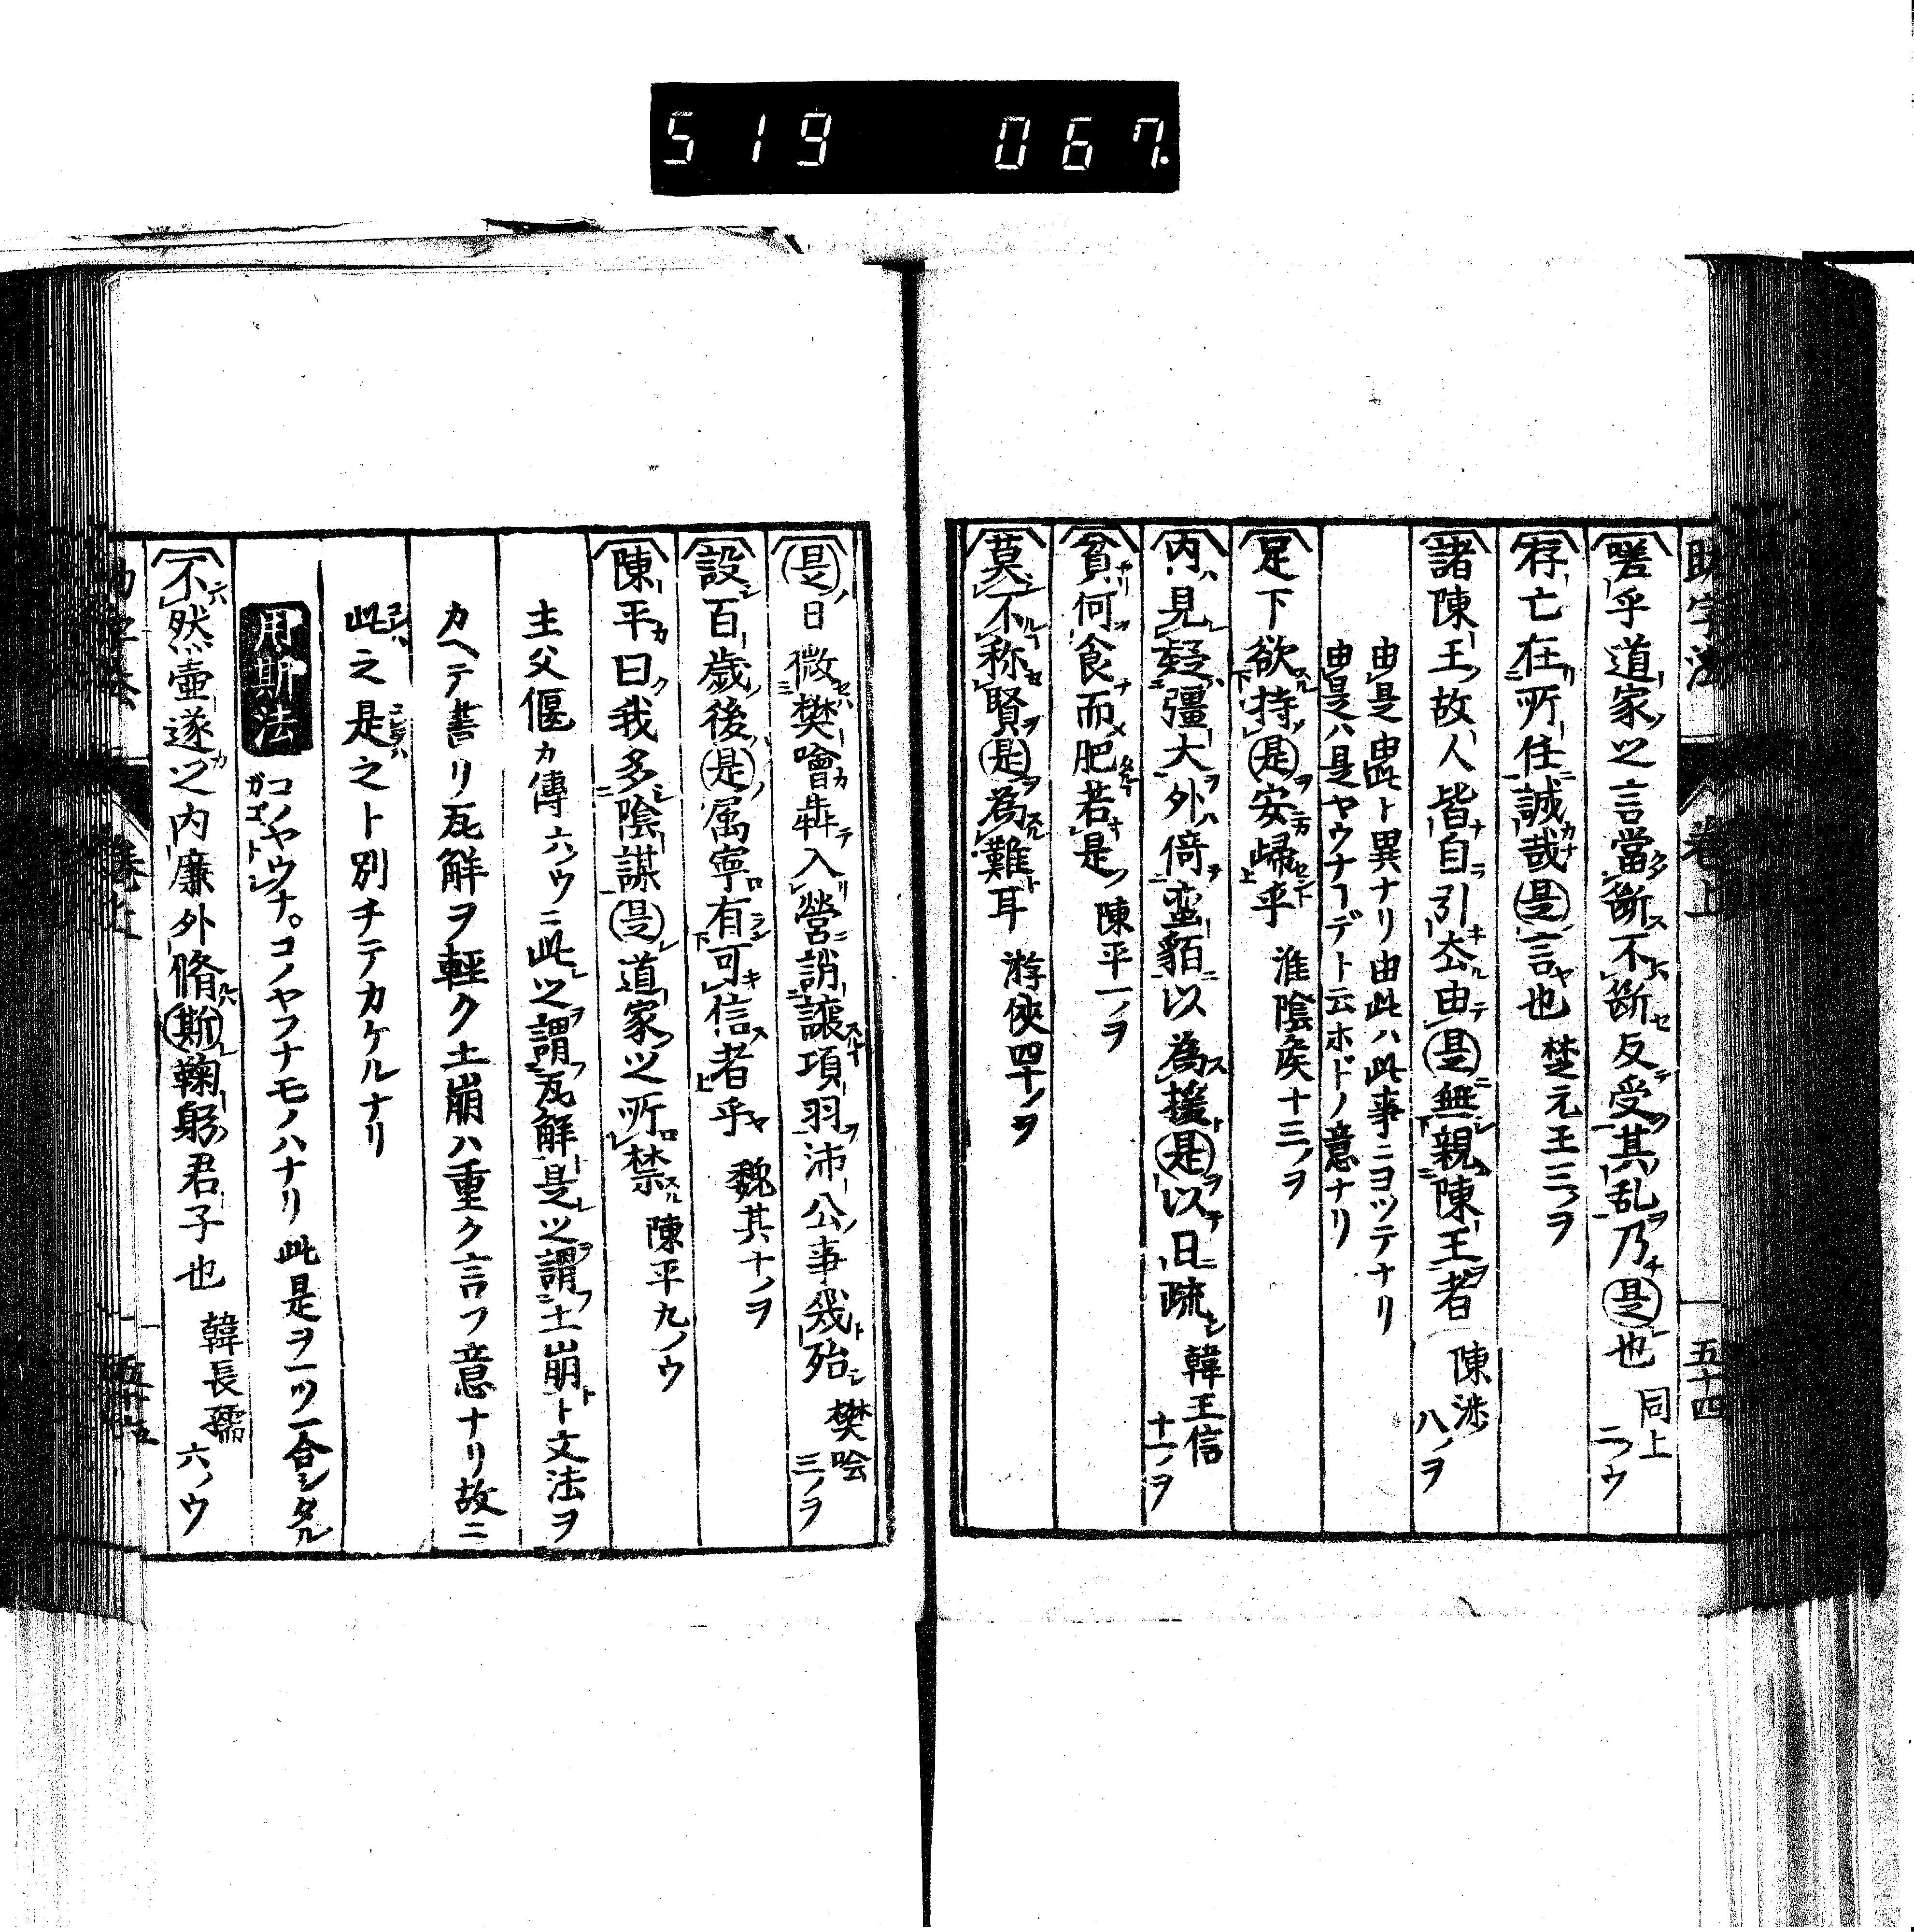 519 067.
助字法 卷上 五十四
嗟乎道家之言當斷不斷反受其乱乃是也 同上 二ノウ
存亡在所任誠哉是言也 楚元王三ノヲ
諸陳王故人皆自引去由是無親陳王者 陳涉 八ノヲ
由是由此ト異ナリ由此ハ此事ニヨツテナリ
由是ハ是ヤウナヿデト云ホドノ意ナリ
足下欲持是安歸乎 淮陰侯十三ノヲ
內見疑彊大外倚蛮貊以為援是以日疏 韓王信 十一ノヲ
貧何食而肥若是 陳平一ノヲ
莫不称賢是為難耳 游俠四十ノヲ
是日微樊噲犇入營誚讓項羽沛公事幾殆 樊噲 三ノヲ
設百歲後是属寧有可信者乎 魏其十ノヲ
陳平曰我多陰謀是道家之所禁 陳平九ノウ
主父偃カ傳六ノウニ此之謂瓦解是之謂土崩ト文法ヲ
カヘテ書リ瓦解ヲ輕ク土崩ハ重ク言フ意ナリ故ニ
此之是之ト別チテカケルナリ
用斯法 コノヤウナ。コノヤフナモノハナリ此是ヲ一ツ合シタル
ガゴトシ
不然壷遂之內廉外脩斯鞠躬君子也 韓長孺 六ノウ